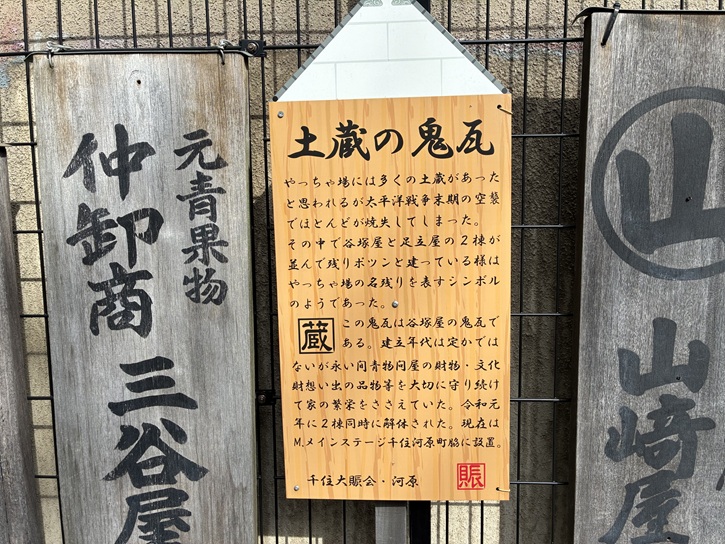 元青果物
仲卸商 三谷屋
土蔵の鬼瓦
やっちゃ場には多くの土蔵があった
と思われるが太平洋戦争末期の空襲
でほとんどが焼失してしまった。
その中で谷塚屋と足立屋の2棟が
並んで残りポツンと建っている様は
やっちゃ場の名残りを表すシンボル
のようであった。
蔵
この鬼瓦は谷塚屋の鬼瓦で
ある。建立年代は定かでは
ないが永い間青物問屋の財物・文化
財想い出の品物等を大切に守り続け
て家の繁栄をささえていた。令和元
年に2棟同時に解体された。現在は
M.メインステージ千住河原町脇に設置。
千住大賑会・河原
賑
山
山﨑屋